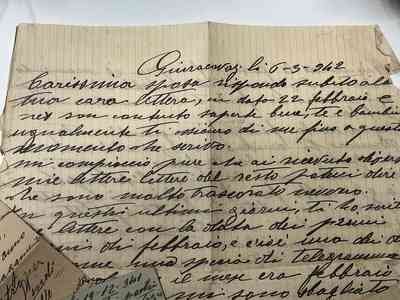 li 6-3-942
Carissima sposa rispondo subito alla
tua cara lettera, in data 22 febbraio e
nel son contento saperti bene, te e bambini
ugualmente ti assicuro di me fino a questo
momento che scrivo.
mi compiaccio pure che ai ricevuto diverse
mie lettere del resto potevi dire
che sono molto trascurato
in questi ultimi giorni, ti ho scritto
lettere con la data dei primi
di febbraio, e così una dei
una specie di telegramma
il mese era febbraio
mi sono sbagliato
12 942